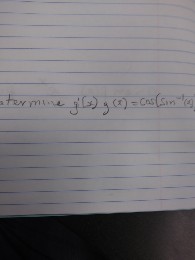 etermine g'(x) g(x) = Cos(Sin⁻¹(x)